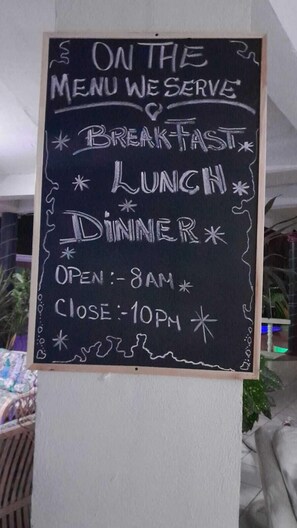 ON THE
MENU WE SERVE
BREAKFAST
LUNCH
DINNER
OPEN:- 8AM
CLOSE:-10PM